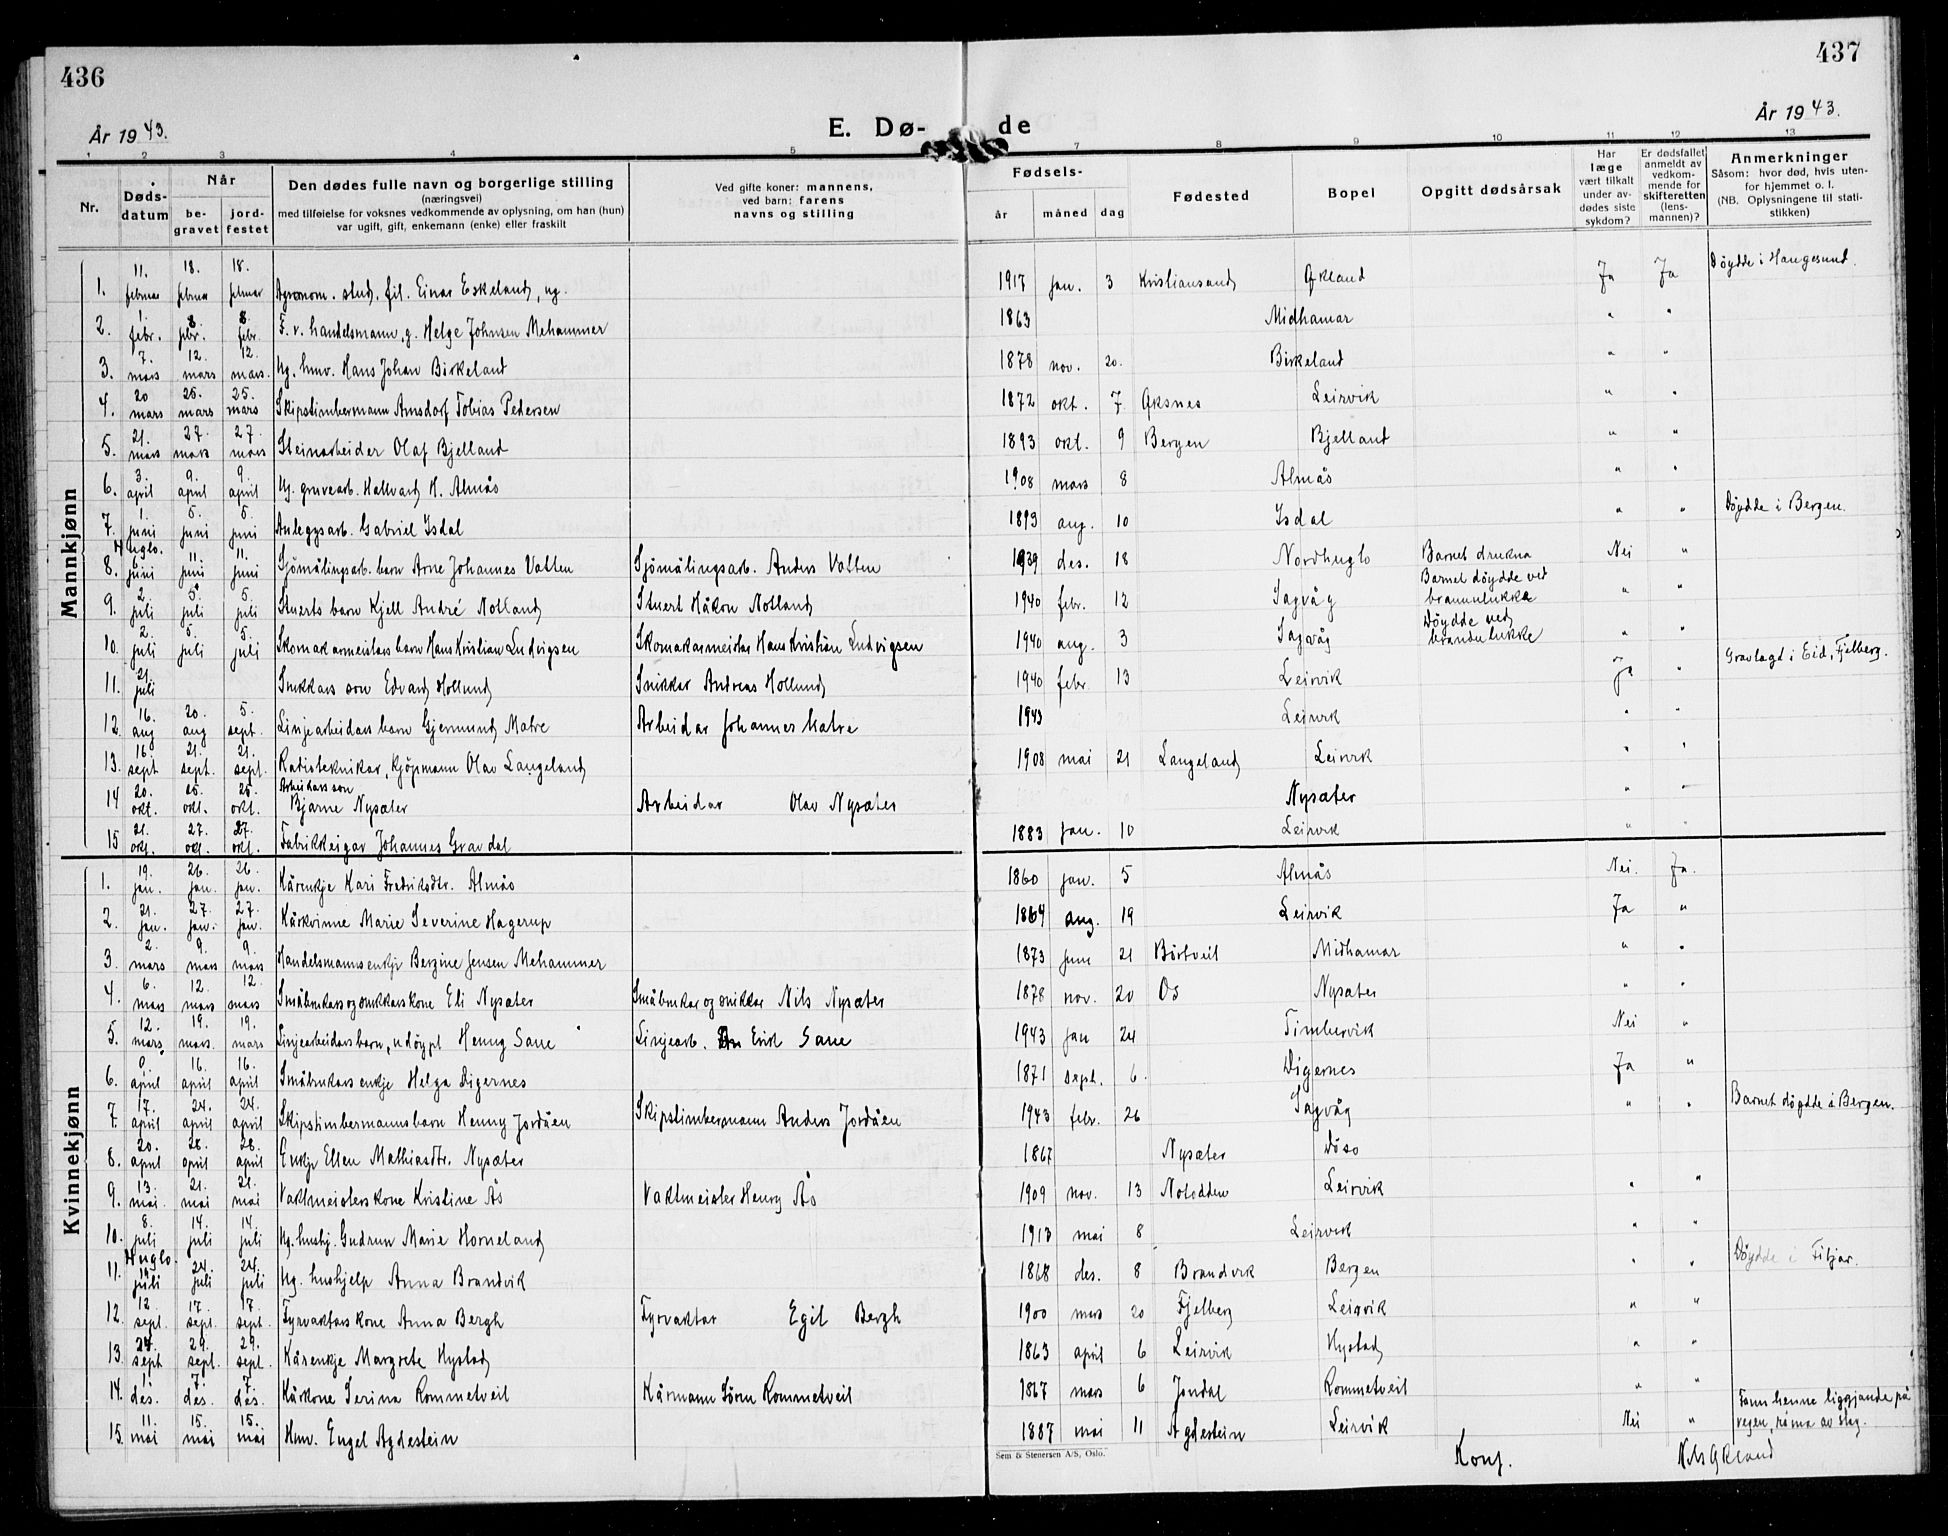 436
437
År 1943.
E. Dø-
de
År 1943.
1 2 3 4 5 7 8 9 10 11 12 13
Nr.
Døds-
datum
Når
be-
gravet
jord-
festet
Den dødes fulle navn og borgerlige stilling
(næringsvei)
med tilføielse for voksnes vedkommende av oplysning, om han (hun)
var ugift, gift, enkemann (enke) eller fraskilt
Ved gifte koner: mannens,
ved barn: farens
navns og stilling
Fødsels-
år måned dag
Fødested
Bopel
Opgitt dødsårsak
Har
læge
vært tilkalt
under av-
dødes siste
sykdom?
Er dødsfallet
anmeldt av
vedkom-
mende for
skifteretten
(lens-
mannen)?
Anmerkninger
Såsom: hvor død, hvis uten-
for hjemmet o. l.
(NB. Oplysningene til stati-
stikken)
Mannkjønn
1. 11. februar 18. februar 18. februar Agronom. stud. fil. Einar Eskeland, ug. 1917 jan. 3 Kristiansand Økland Ja Ja Döydde i Haugesund.
2. 1. febr. 8. febr. 8. febr. F. v. handelsmann, g. Helge Johnsen Mehammer 1863 Midhamar " "
3. 7. mars 12. mars 12. mars. Ug. hmv. Hans Johan Birkeland 1878 nov. 20. Birkeland " "
4. 20 mars 25. mars 25. mars Skipstimbermann Arnsdorf Tobias Pedersen 1872 okt. 7. Øksnes Leirvik " "
5. 21. mars 27. mars 27. mars Steinarbeider Olaf Bjelland 1893 okt. 9 Bergen Bjelland " "
6. 3. april 9. april 9. april Ug. gruvearb. Hallvard H. Almås 1908 mars 8 Almås " "
7. 1. juni 5. juni 5. juni Anleggsarb. Gabriel Isdal 1893 aug. 10 Isdal " " Döydde i Bergen.
8. Huglo. 6. juni 11. juni 11. juni Sjömålingsarb. barn Arne Johannes Valten Sjömålingsarb. Anders Valten 1939 des. 18 Nordhuglo Barnet drukna Nei "
9. 2. juli 5. juli 5. juli Stuerts barn Kjell André Notland Stuert Håkon Notland 1940 febr. 12 Sagvåg Barnet döydde ved brannulukke " "
10. 2. juli 5. juli 5. juli Skomakarmeistars barn Hans Kristian Ludvigsen Skomakarmeistar Hans Kristian Ludvigsen 1940 aug. 3 Sagvåg Döydde ved brandulukke " "
11. 21. juli Snikkars son Edvard Hollund Snikkar Andreas Hollund 1940 febr 13 Leirvik Ja " Gravlagd i Eid, Fjelberg.
12. 16. aug 20. aug 5. sept. Linjearbeidars barn Gjermund Matre Arbeidar Johannes Matre 1943 Leirvik " "
13. 16. sept 21. sept. 21. sept. Radioteknikar, kjöpmann Olav Langeland 1908 mai 21 Langeland Leirvik " "
14 20. okt. 25. okt. 25. okt. Arbeidars son Bjarne Nysæter Arbeidar Olav Nysæter Nysæter " "
15 21. okt. 27. okt. 27. okt. Fabrikkeigar Johannes Gravdal 1883 jan. 10 Leirvik " "
Kvinnekjønn
1. 19. jan. 26. jan. 26. jan. Kårenkje Kari Fredriksdtr. Almås 1860 jan. 5 Almås Nei. Ja.
2. 21. jan. 27. jan. 27. jan. Kårkvinne Marie Severine Hagerup 1864 aug. 19 Leirvik Ja "
3. 2. mars 9. mars 9. mars Handelsmanns enkje Bergine Jensen Mehammer 1873 juni 21 Börtveit Midhamar " "
4. 6. mars 12. mars 12. mars Småbrukars og snikkars kone Eli Nysæter Småbrukar og snikkar Nils Nysæter 1878 nov. 20 Os Nysæter " "
5. 12. mars 19. mars. 19. mars Linjearbeidars barn, udöypt Henny Sane Linjearb. Erik Sane 1943 jan 24 Timbervik Nei "
6. 9. april 16. april 16. april Småbrukars enkje Helga Digernes 1871 sept. 6. Digernes Ja "
7. 17. april 24. april 24. april Skipstimbermanns barn Henny Jordåen Skipstimbermann Anders Jordåen 1943 febr. 26 Sagvåg " " Barnet döydde i Bergen.
8. 20. april 28. april 28. april Enkje Ellen Mathiasdtr. Nysæter 1867 Nysæter Döso
9. 13. mai. 21. mai 21. mai Vaktmeisters kone Kristine Ås Vaktmeister Henry Ås 1909 nov. 13 Notodden Leirvik " "
10. 8. juli 14. juli 14. juli Ug. hushj. Gudrun Marie Horneland 1913 mai 8 Leirvik " "
11. Huglo. juli 24. juli 24. juli Ug. hushjelp Anna Brandvik 1868 des. 8 Brandvik Bergen " " Döydde i Fitjar.
12. 12 sept. 17. sept. 17. sept. Fyrvaktars kone Anna Bergh Fyrvaktar Egil Bergh 1900 mars 20 Fjelberg Leirvik " "
13. 24. sept 29. sept. 29. sept. Kårenkje Margrete Hystad 1863 april 6 Leirvik Hystad " "
14. 1. des. 7. des. 7. des. Kårkone Serina Rommetveit Kårmann Sören Rommetveit 1867 mars 6 Jondal Rommetveit " "
15. 11. mai 15. mai 15. mai Hmv. Engel Agdestein 1887 mai 11 Agdestein Leirvik Nei " Fann henne liggjande på vegen, råma av slag.
Sem & Stenersen A/S, Oslo.
Konf.
Nils Økland